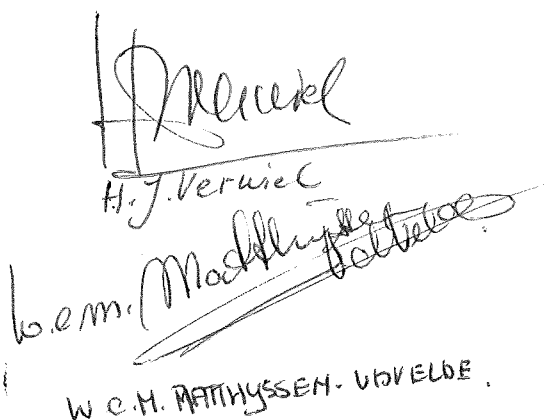 HJVerwiel
H.J. Verwiel
W.C.M. Matthyssen
vdVelde
W C.M. MATTHYSSEN- VDVELDE.